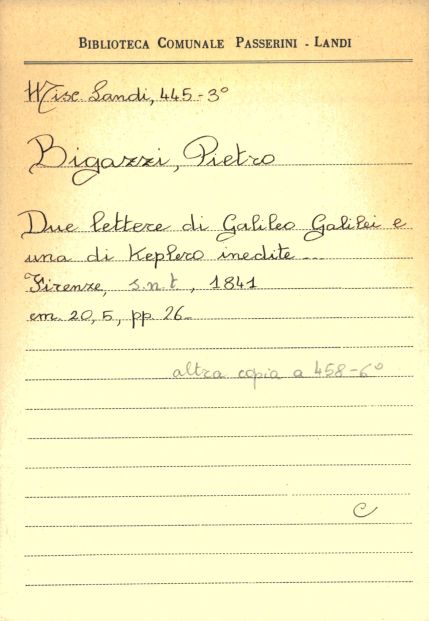 BIBLIOTECA COMUNALE PASSERINI - LANDI
Misc. Landi, 445-3°
Bigazzi, Pietro
Due lettere di Galileo Galilei e
una di Keplero inedite ...
Firenze, s.n.t, 1841
cm. 20,5, pp. 26.
altra copia a 458-6°
C